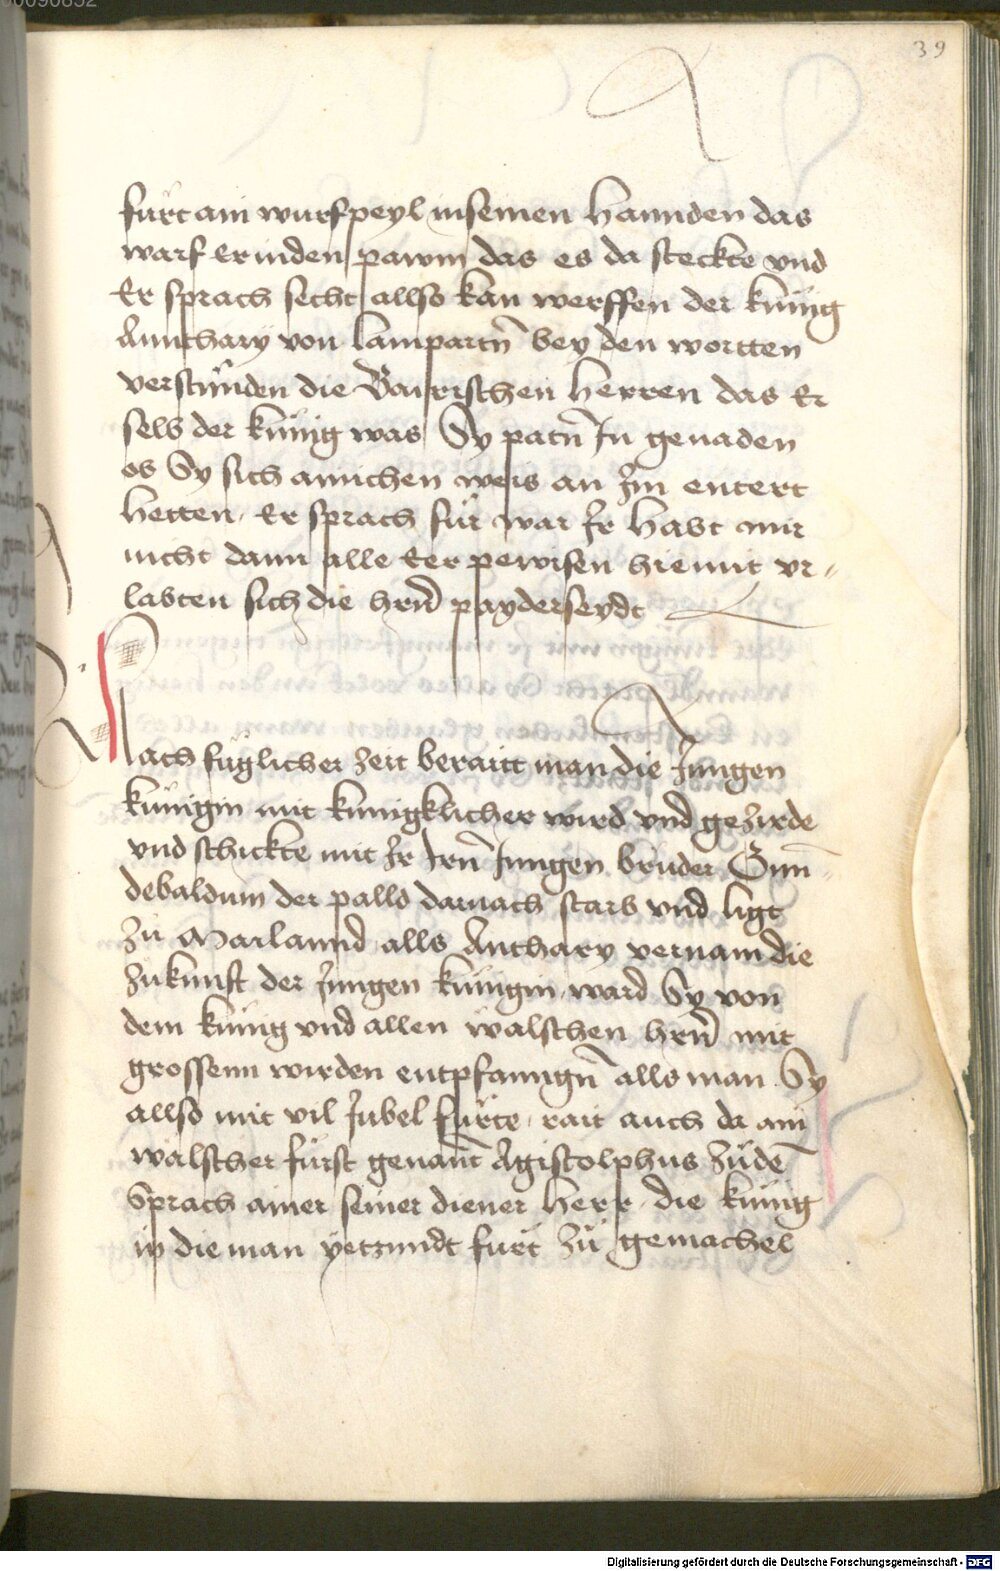 39
fürt ain wurfpeyl in seinen hannden das
warf er in den pawm das es da steckte vnd
Er sprach secht allso kan werffen der kunig
Anthary von lampartn̄ bey den wortten
verstunden die Bairischen herren das Er
selb der kunig was Sy patn̄ In genaden
ob Sy sich ainichen weis an Im entert
hetten, Er sprach für war Ir habt mir
nicht dann alle Eer pewisen hiemit vr-
labten sich die hrn̄ payderseydt
Nach füglicher zeit beraitt man die Jungen
kunigin mit kunigklicher wird vnd gezirde
vnd schickte mit Ir Irn̄ Jungen bruder Gun-
debaldum der palld darnach starb vnd ligt
zu Mailannd alls Anthary vernam die
zukunft der Jungen kunigin, ward Sy von
dem kunig vnd allen walschen hrn̄ mit
grossenn wirden entpfanngn̄ alls man Sy
allso mit vil Jubel furte, rait auch da ain
walscher fürst genant̄ Agistolphus zu dē
Sprach ainer seiner diener herr, die kunig
in die man yetzundt furt zu gemachel
Digitalisierung gefördert durch die Deutsche Forschungsgemeinschaft - DFG